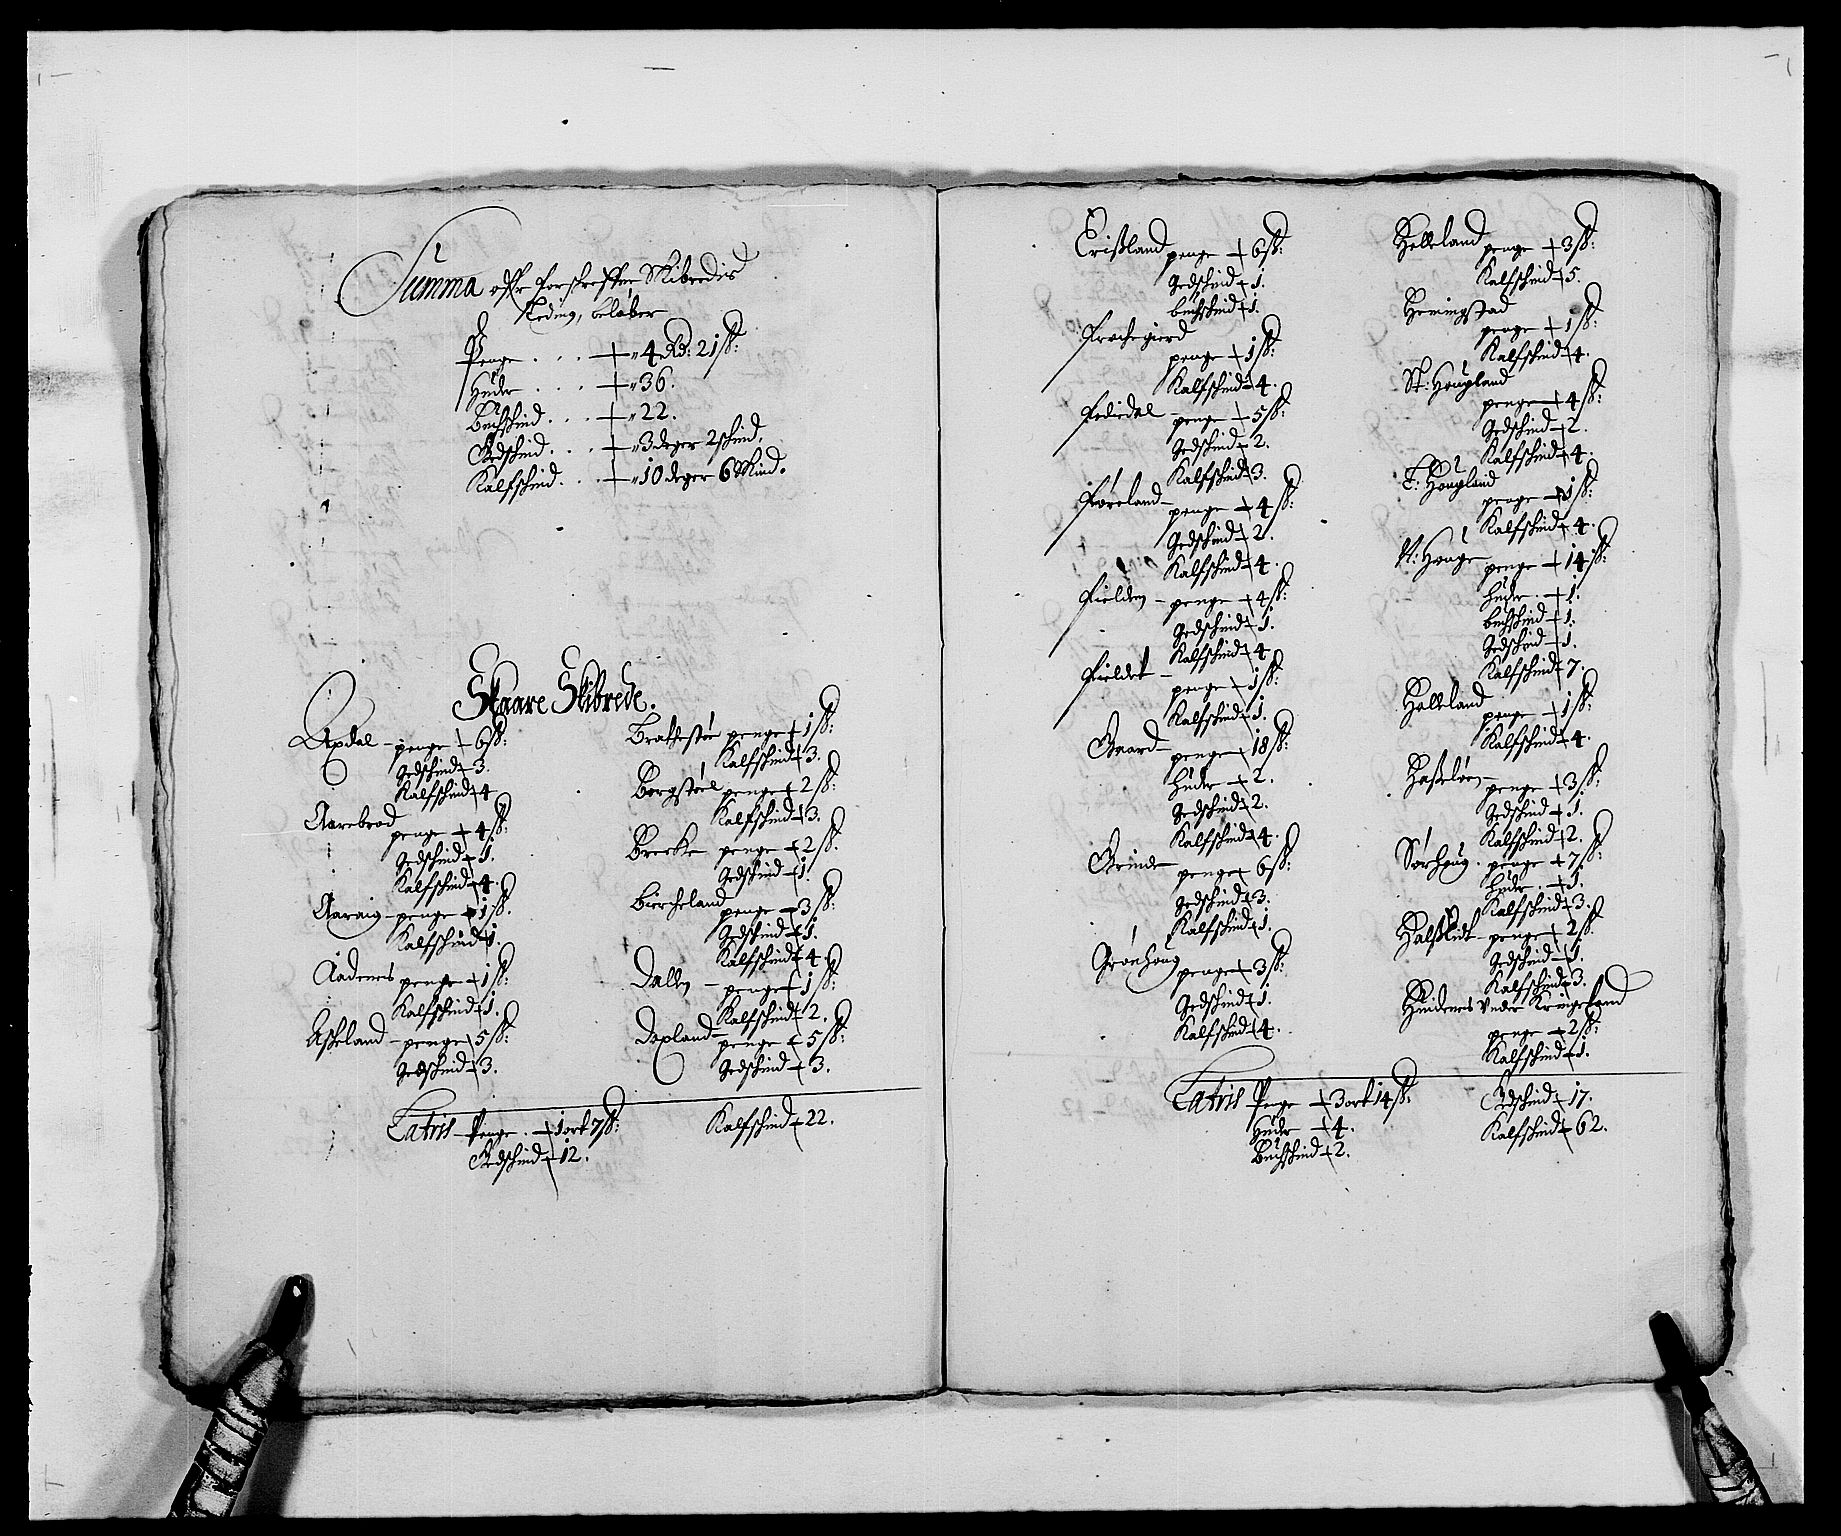 Summa offr forschreffne Skibredis
Leding, beløber
Penge . . . . 4 Rd: 21 ß:
Huder . . . . 36.
Buchschind . . . 22.
Gedschind . . . . 3 deger 2 schind.
Kalfschind . . . 10 deger 6 Skind.
Skaare Skibrede.
Apdal - penge - 6 ß:
Gedschind - 3.
Kalfschind - 4
Aarebrod
penge - 4 ß:
Gedschind - 1.
Kalfschind - 4.
Aaraig - penge - 1 ß.
Kalfschind 1.
Aadenes penge - 1 ß:
Kalfschind - 1.
Aßheland - penge 5 ß:
Gedschind - 3.
Brathestøe penge - 1 ß:
Kalfschind - 3.
Borgstøel penge - 2 ß:
Kalfschind - 3.
Brecke penge - 2 ß.
Gedschind - 1.
Biercheland
penge - 3 ß:
Gedschind - 1.
Kalfschind - 4.
Dallen - penge - 1 ß:
Kalfschind - 2.
Dopland -
penge - 5 ß:
Gedschind - 3.
Latris - Penge . - 1 ort 7 ß:
Gedschind - 12.
Kalfschind - 22.
Erißland penge - 6 ß:
Gedschind - 1.
buchschind - 1.
penge - 1 ß:
Kalfschind - 4.
Fediedal - penge - 5 ß:
Gedschind - 2.
Kalfschind - 3.
Føreland - penge - 4 ß:
Gedschind - 2.
Kalfschind - 4.
Fielden - penge - 4 ß:
Gedschind - 1.
Kalfschind - 4
Fieldet -
penge - 1 ß:
Kalfschind - 1.
Gaard - penge 18 ß:
Huder - 2.
Gedschind - 2.
Kalfschind - 4.
Grinde - penge - 6 ß:
Gedschind - 3.
Kalfschind - 1.
Grønhoug
penge - 3 ß:
Gedschind - 1.
Kalfschind - 4.
Helleland penge - 3 ß:
Kalfschind - 5.
Heningstad
penge - 1 ß:
Kalfschind - 4.
St: Hougland
penge - 4 ß:
Gedschind - 2.
Kalfschind - 4.
L: Hougland
penge - 1 ß:
Kalfschind - 4.
N: Houge penge - 14 ß:
huder . - 1.
buchschind - 1.
Gedschind - 1.
Kalfschind - 7.
Helleland
penge - 1 ß:
Kalfschind - 4.
Haßeløen -
penge - 3 ß:
Gedschind - 1.
Kalfschind - 2.
Sørhoug . penge - 7 ß:
huder . - 1.
Kalfschind - 3.
penge - 2 ß.
Gedschind - 1.
Kalfschind - 3.
Hindenes Under Kringeland
penge - 2 ß:
Kalfschind - 1.
Latris Penge - 3 ort 14 ß:
Huder - 4.
Buchschind - 2.
Gedschind - 17.
Kalfschind - 62.